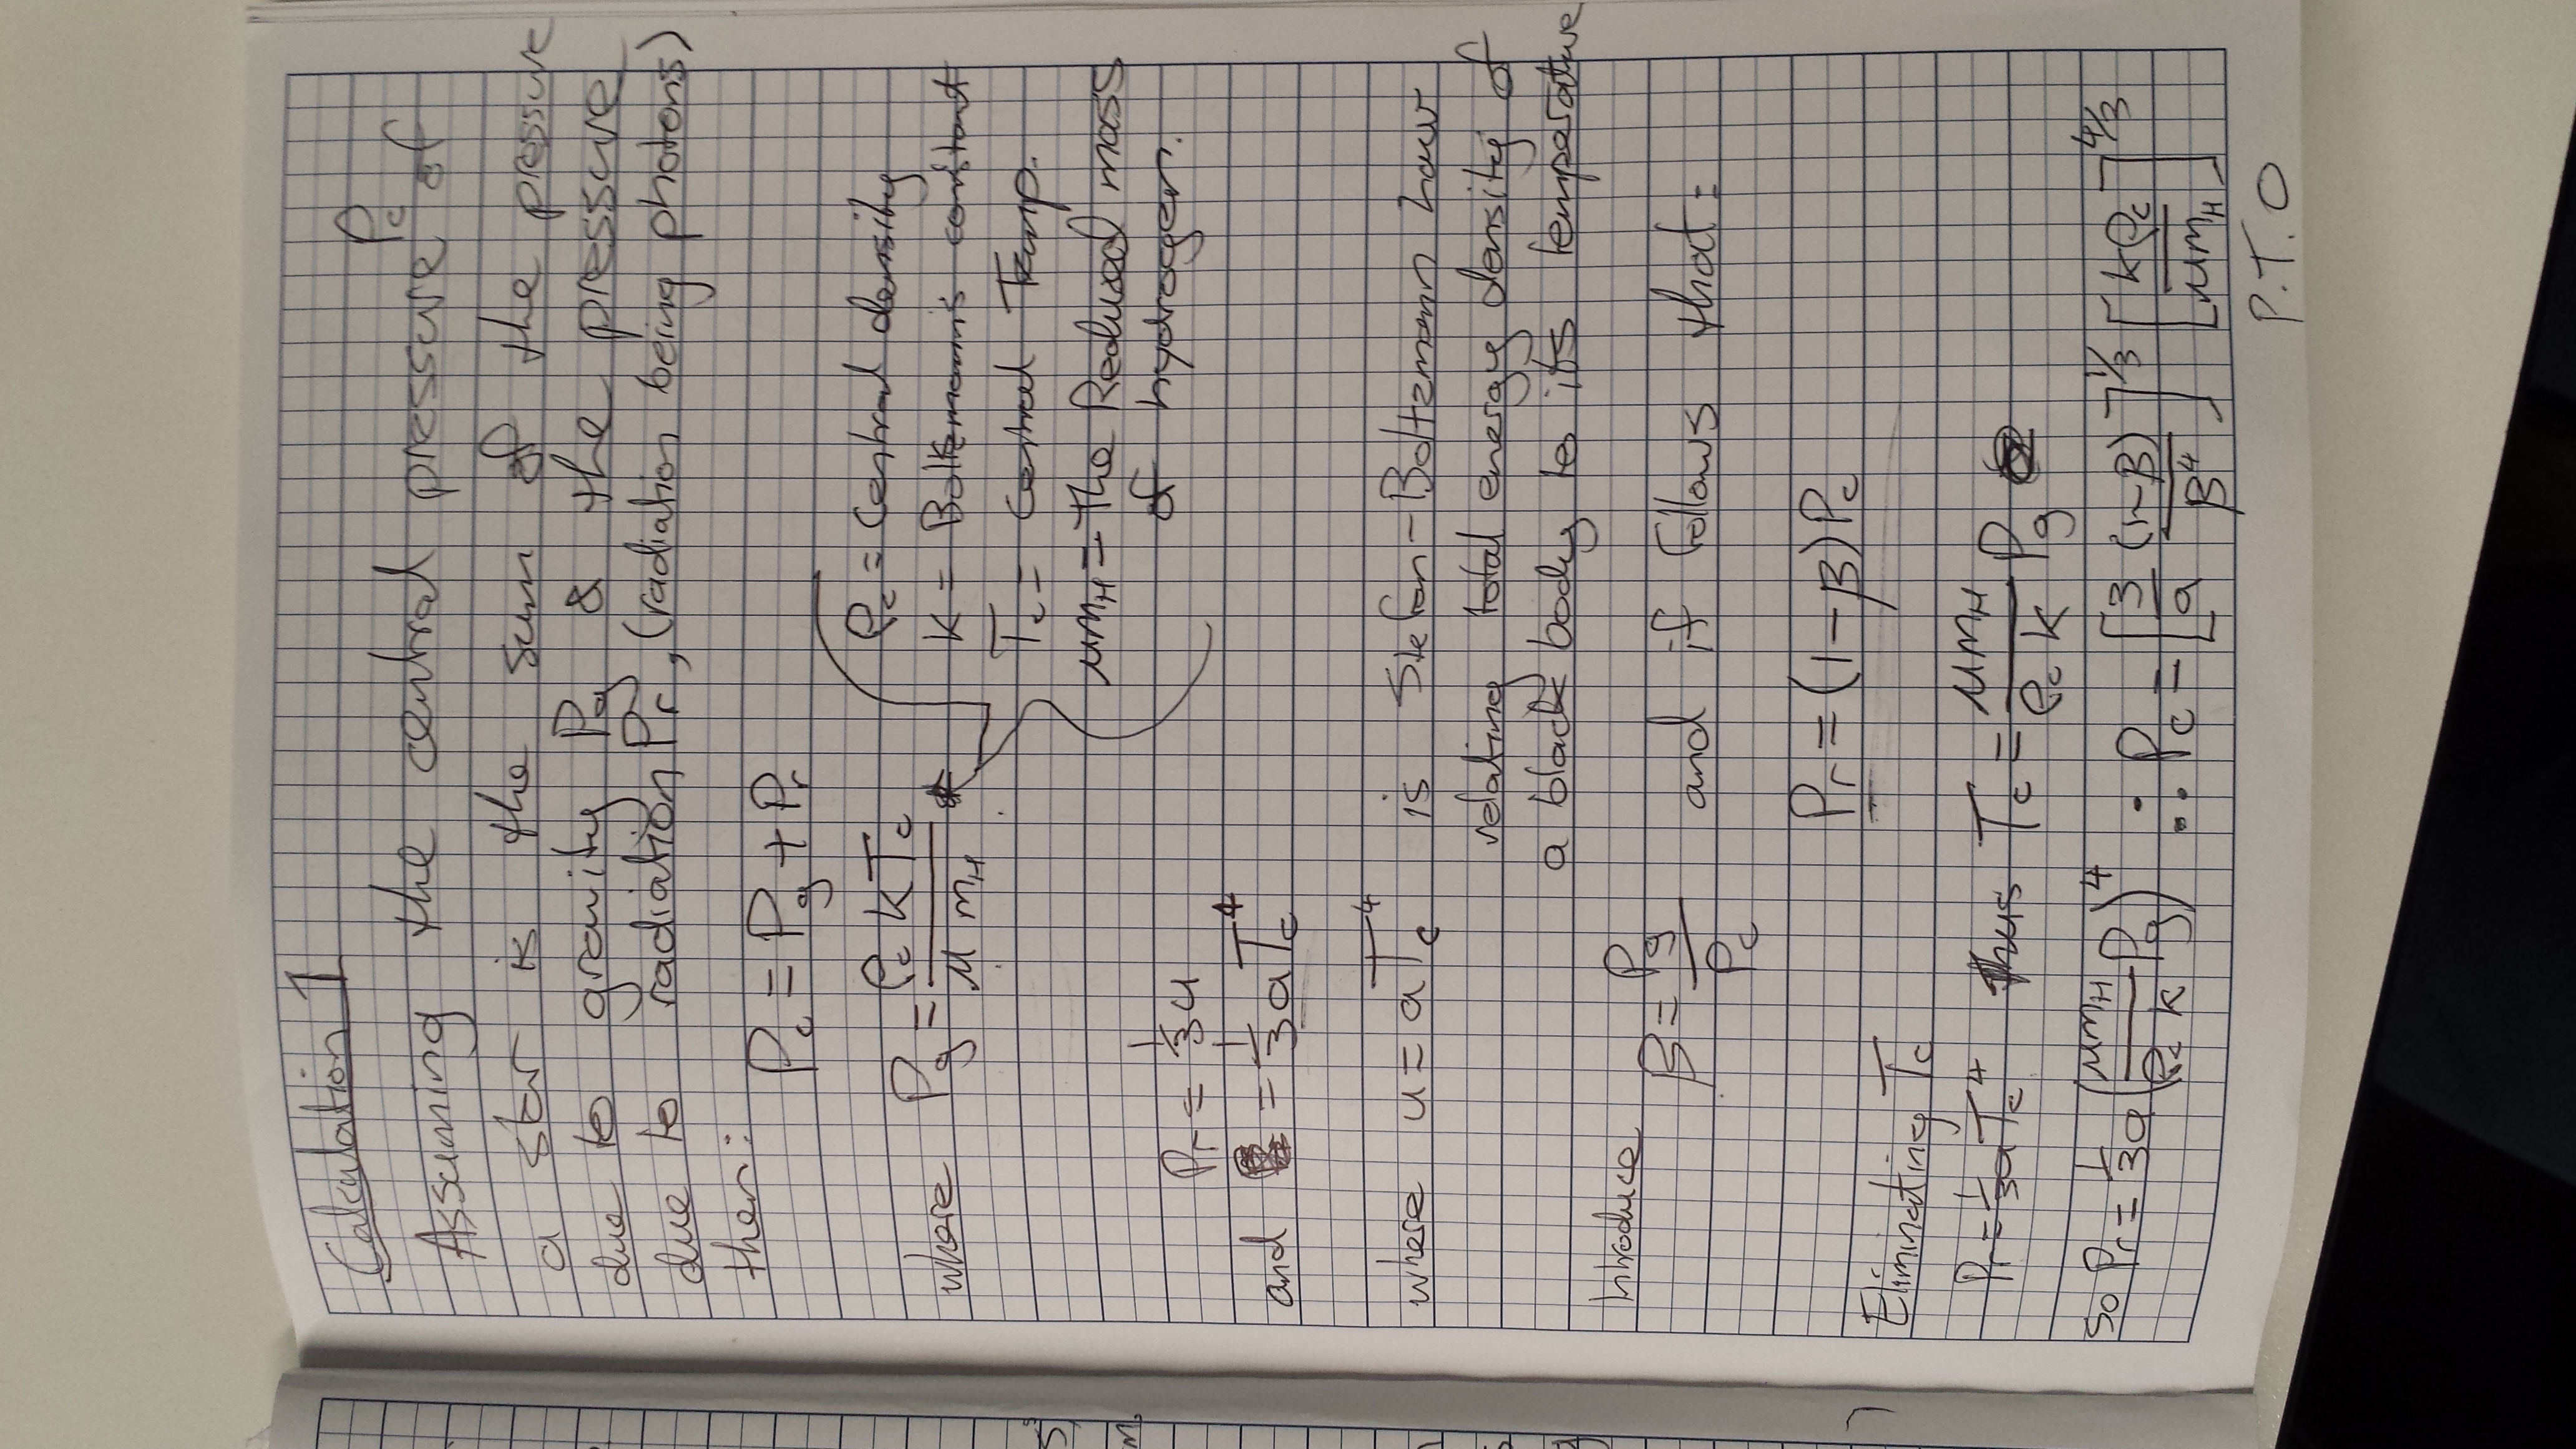 Calculation 1
Pc
Assuming the central pressure of
a star is the sum of the pressure
due to gravity Pg & the pressure
due to radiation Pr, (radiation being photons)
then:
Pc = Pg + Pr
where Pg = ρc k Tc / μ mH
ρc = Central density
K = Boltzmann's constant
Tc = Central Temp.
μmH = the Reduced mass
of hydrogen.
Pr = 1/3 u
and = 1/3 a Tc^4
where u = a Tc^4 is Stefan-Boltzmann Law
relating total energy density of
a black body to its temperature
Introduce
β = Pg / Pc and if follows that:
Pr = (1-β) Pc
Eliminating Tc
Pr = 1/3 a Tc^4 Thus Tc = μmH / ρc k Pg
So Pr = 1/3 a (μmH / ρc k Pg)^4 ∴ Pc = [3/a (1-β)/β^4]^1/3 [kρc / μmH]^4/3
P.T.O